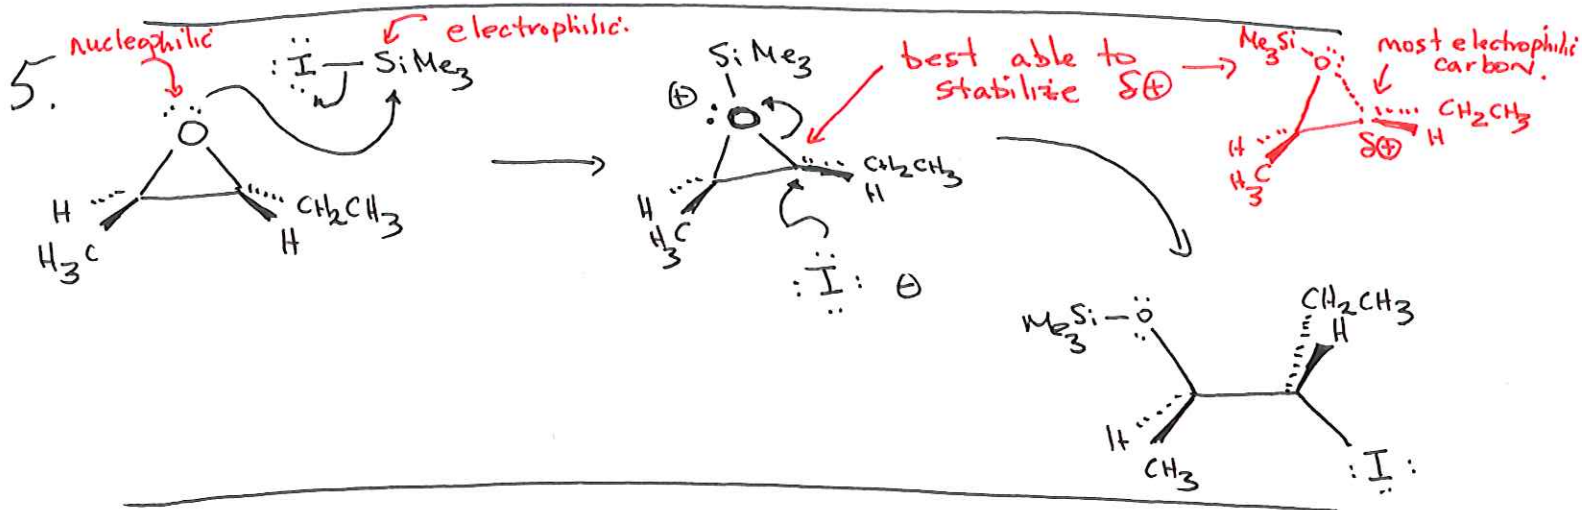 5.
nucleophilic
:Ï—SiMe3
electrophilic.
O
H
H3C
CH2CH3
H
SiMe3
⊕ :O
best able to
stabilize δ⊕
H
H3C
CH2CH3
H
:Ï: ⊖
Me3Si
O
most electrophilic
carbon.
CH2CH3
H
δ⊕
H
H3C
Me3Si—O
CH2CH3
H
H
CH3
:I: